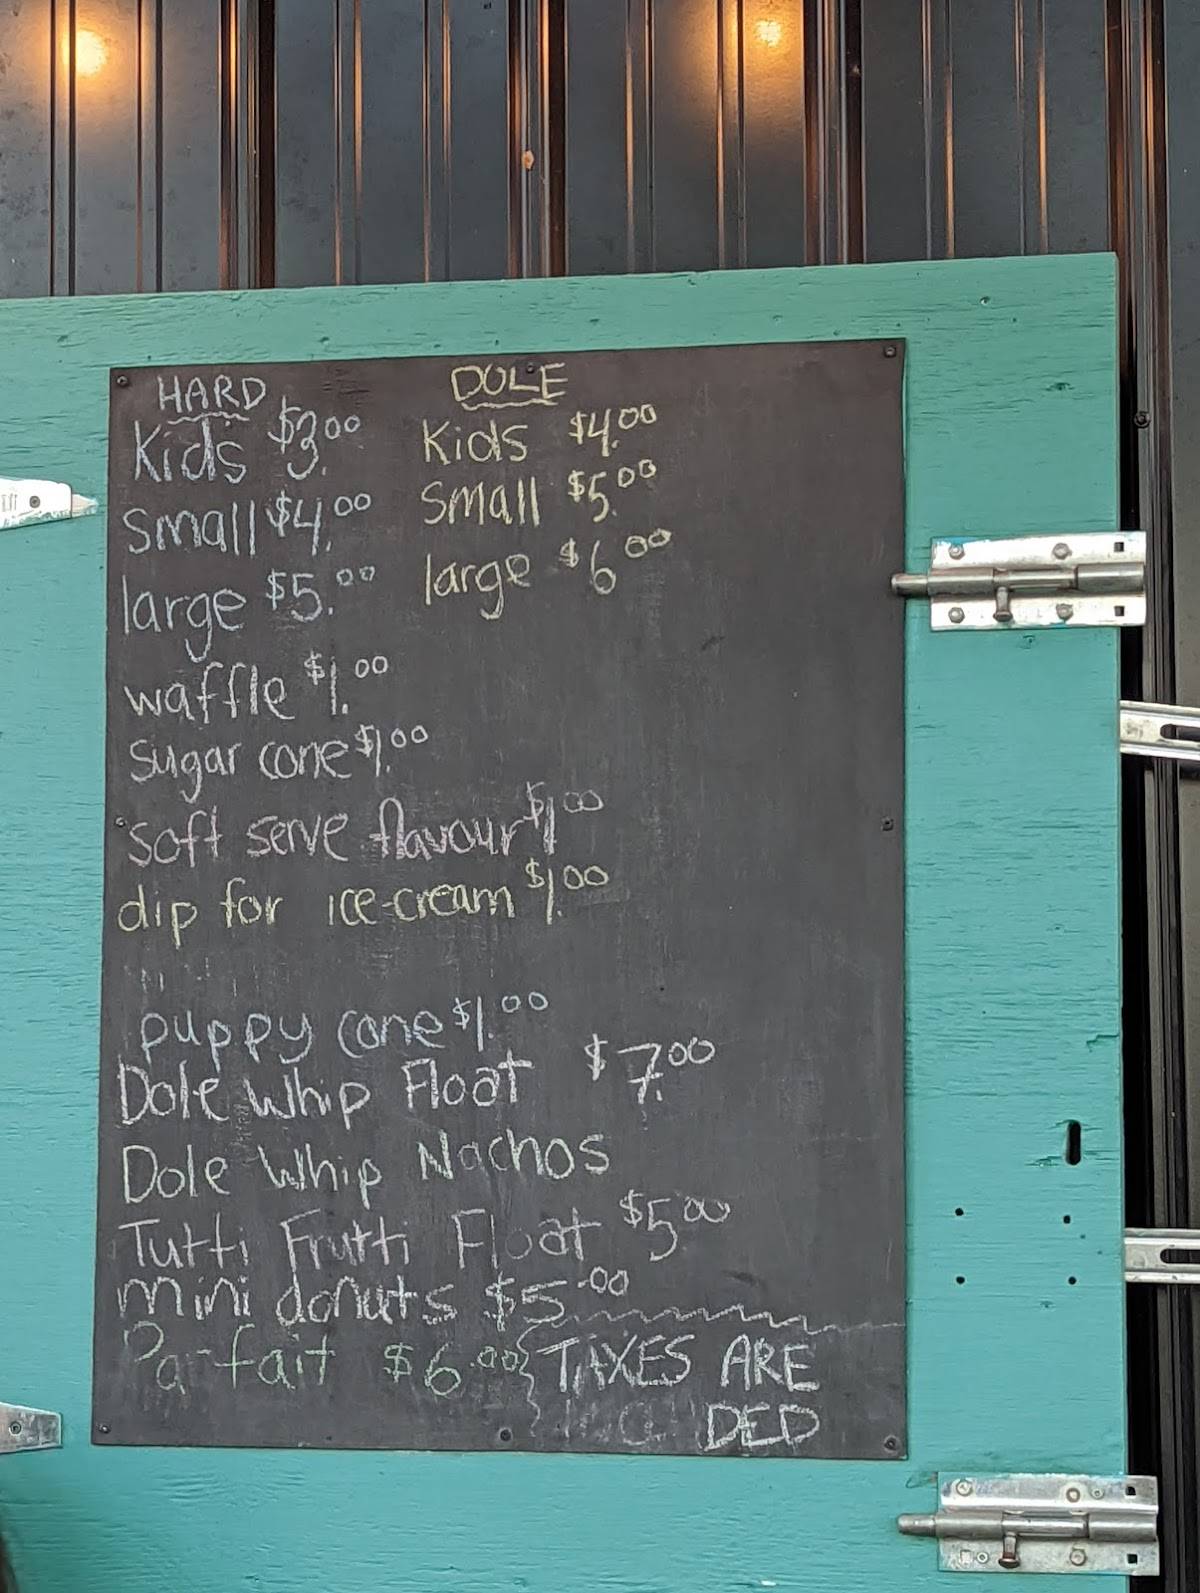 HARD
Kids $3.00
small $4.00
large $5.00
waffle $1.00
sugar cone $1.00
soft serve flavour $1.00
dip for ice-cream $1.00
DOLE
Kids $4.00
Small $5.00
large $6.00
puppy cone $1.00
Dole Whip Float $7.00
Dole Whip Nachos
Tutti Frutti Float $5.00
mini donuts $5.00
Pa fait $6.00
TAXES ARE
DED